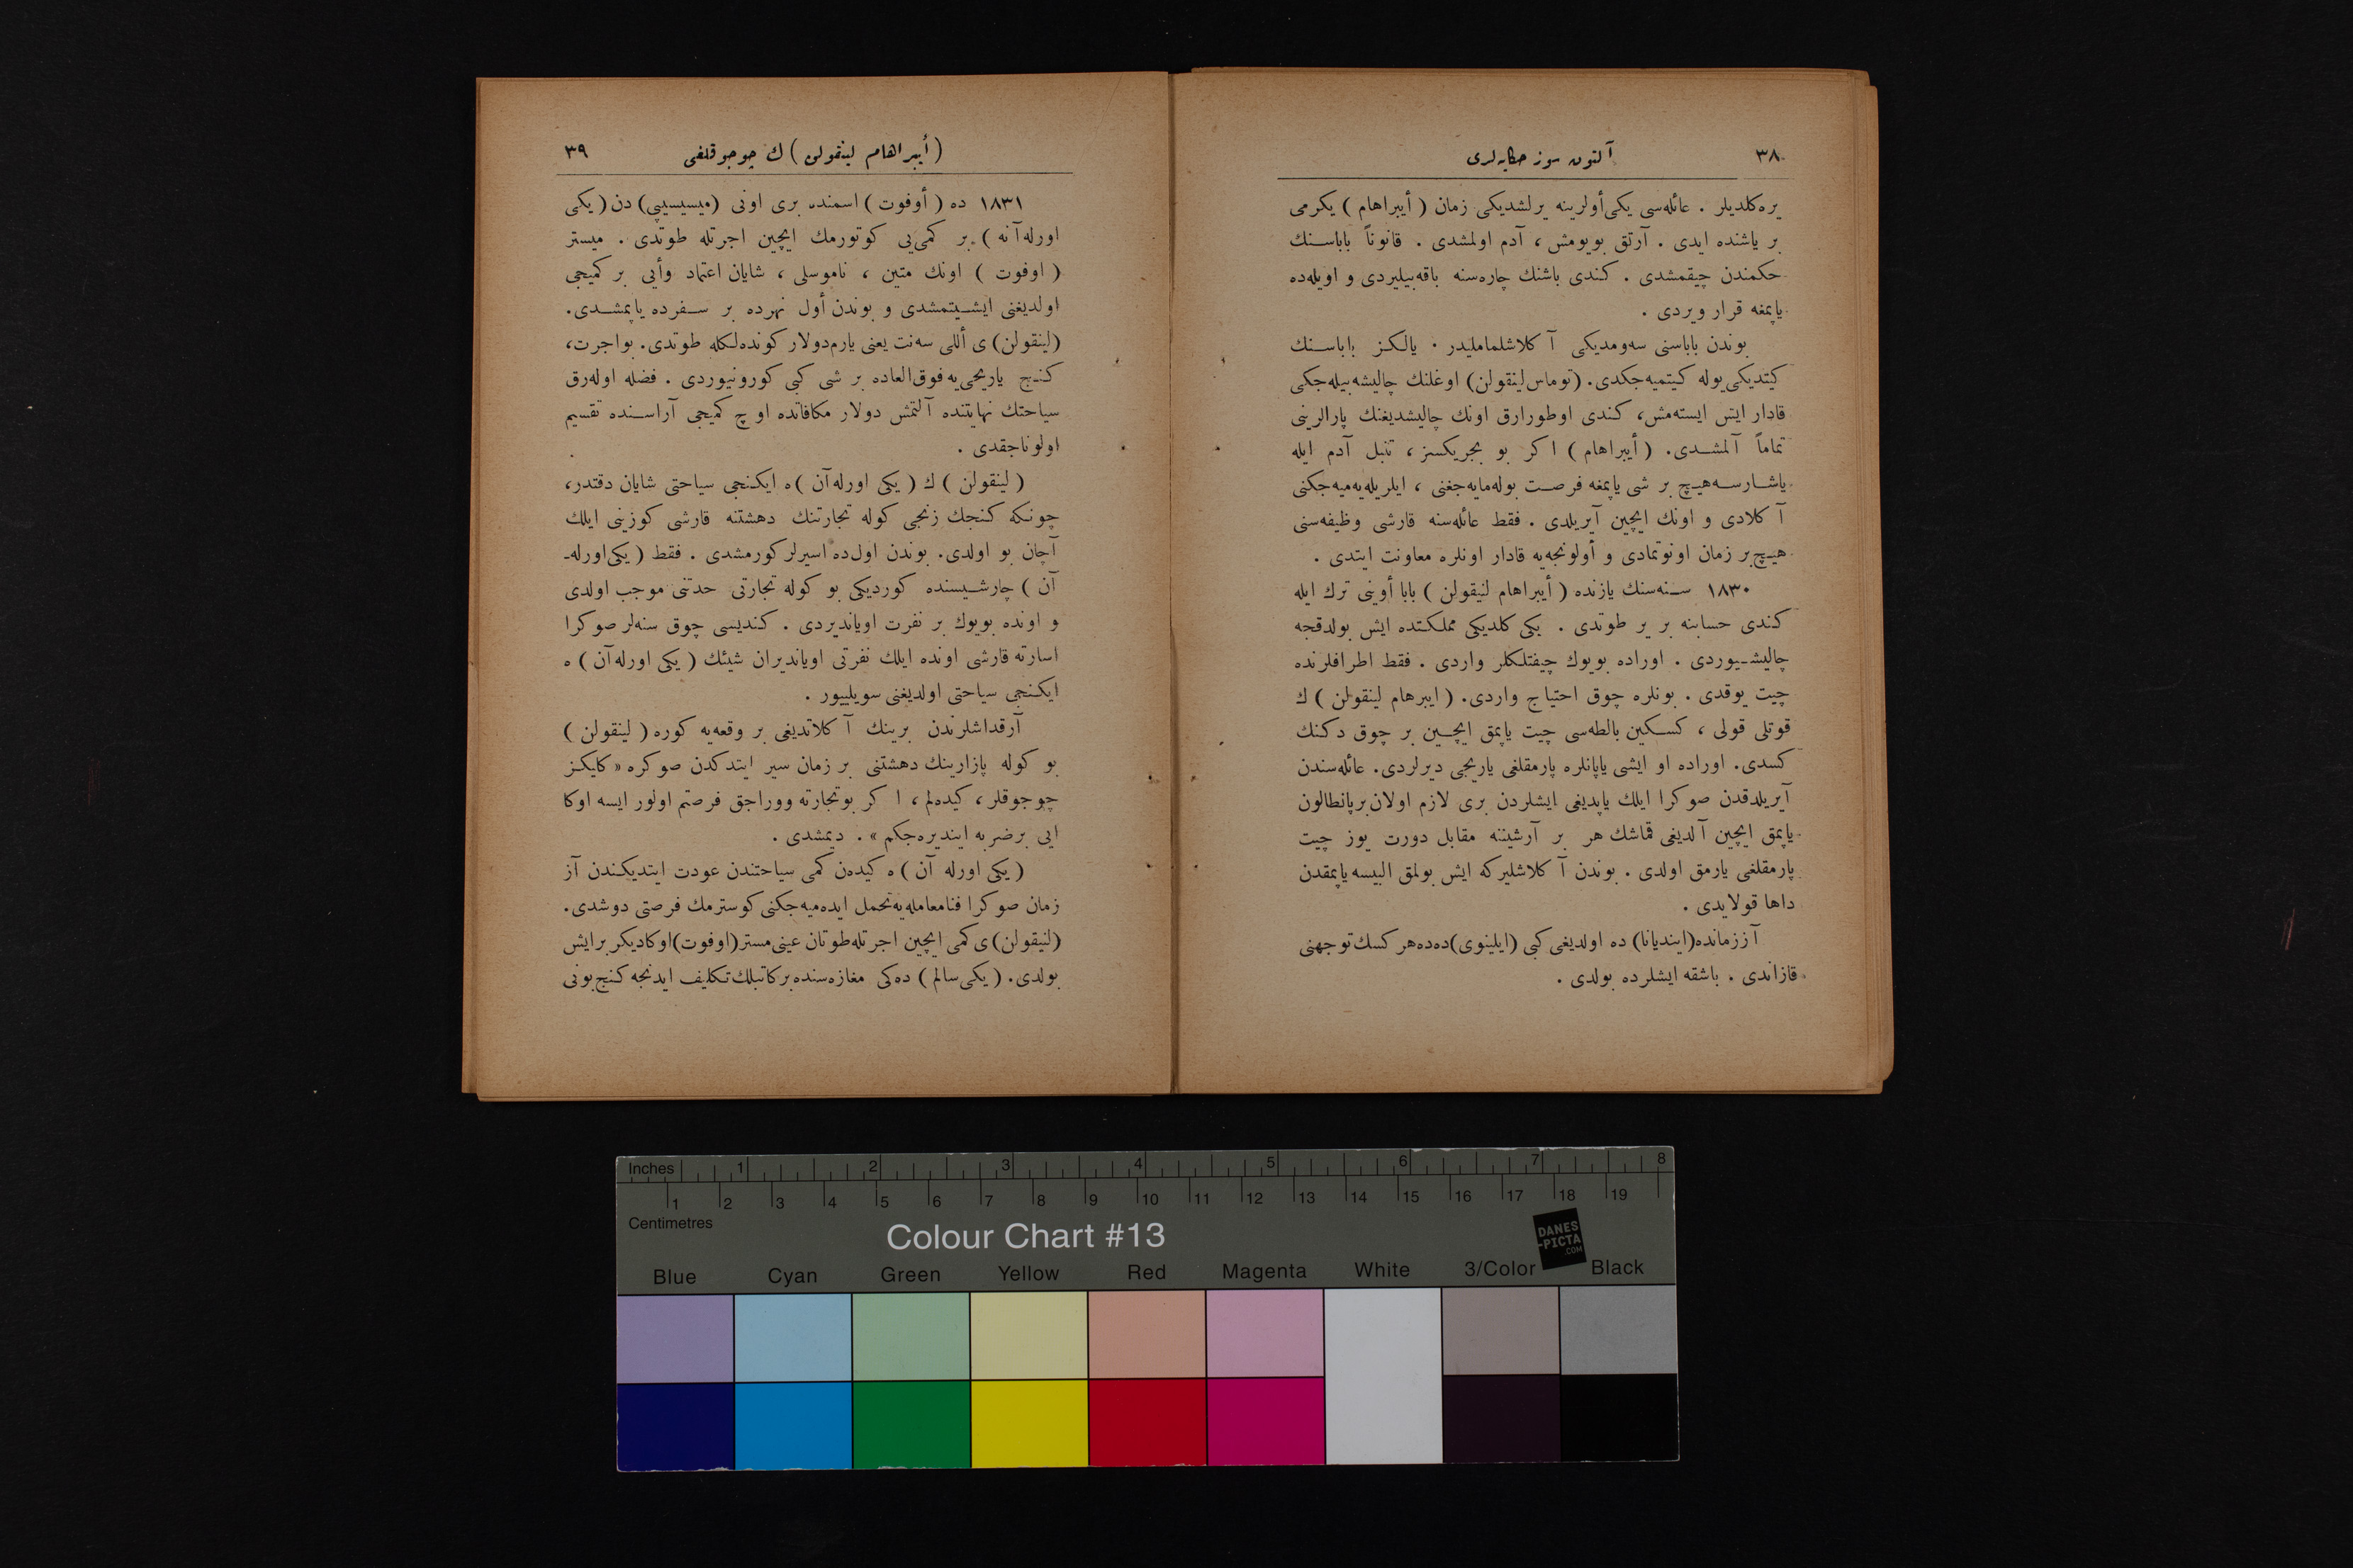 ٣٨
آلتون سوز حكايه‌لرى
يره كلديلر . عائله‌سى يكى أولرينه يرلشديكى زمان ( أيبراهام ) يكرمى
بر ياشنده ايدى . آرتق بويومش ، آدم اولمشدى . قانوناً باباسنك
حكمندن چيقمشدى . كندى باشنك چاره‌سنه باقه‌بيليردى و اويله‌ده
ياپمغه قرار ويردى .
بوندن باباسنى سه‌ومديكى آ كلاشلماملیدر . يالكز باباسنك
كيتديكى يوله كيتميه‌جكدى. (توماس لينقولن) اوغلنك چاليشه‌بيله‌جكى
قادار ايش ايسته‌مش، كندى اوطورارق اونك چاليشديغنك پارالرينى
تماماً آلمشدى. ( أيبراهام ) ا كر بو بجريكسز ، تنبل آدم ايله
ياشارسه هيچ بر شى ياپمغه فرصت بوله‌مايه‌جغنى ، ايلريله‌يه‌ميه‌جكنى
آ كلادى و اونك ايچين آيريلدى . فقط عائله‌سنه قارشى وظيفه‌سنى
هيچ بر زمان اونوتمادى و أولونجه‌يه قادار اونلره معاونت ايتدى .
١٨٣٠ سنه‌سنك يازنده ( أيبراهام لنيقولن ) بابا أوينى ترك ايله
كندى حسابنه بر ير طوتدى . يكى كلديكى مملكتده ايش بولدقجه
چاليشيوردى . اوراده بويوك چيفتلكلر واردى . فقط اطرافلرنده
چيت يوقدى . بونلره چوق احتياج واردى. ( ايبرهام لينقولن ) ك
قوتلى قولى ، كسكين بالطه‌سى چيت ياپمق ايچين بر چوق دكنك
كسدى. اوراده او ايشى ياپانلره پارمقلغى ياريجى ديرلردى. عائله‌سندن
آيريلدقدن صوكرا ايلك ياپديغى ايشلردن برى لازم اولان بر پانطالون
ياپمق ايچين آلديغى قماشك هر بر آرشيننه مقابل دورت يوز چيت
پارمقلغى يارمق اولدى . بوندن آ كلاشليركه ايش بولمق البيسه ياپمقدن
داها قولايدى .
آز زمانده (اينديانا) ده اولديغى كبى (ايلينوى)ده‌ده هر كسك توجهنى
قازاندى . باشقه ايشلرده بولدى .
( أيبراهام لينقولن ) ك چوجوقلغى
٣٩
١٨٣١ ده ( أوفوت ) اسمنده برى اونى (ميسيسيپى) دن ( يكى
اورله‌آنه ) بر كمى‌يى كوتورمك ايچين اجرتله طوتدى . ميستر
( اوفوت ) اونك متين ، ناموسلى ، شايان اعتماد وأيى بر كميجى
اولديغنى ايشيتمشدى و بوندن أول نهرده بر سفرده ياپمشدى.
(لينقولن) ى أللى سه‌نت يعنى يارم دولار كونده‌لكله طوتدى. بواجرت،
كنج ياريجى‌يه فوق‌العاده بر شى كبى كورونيوردى . فضله اوله‌رق
سياحتك نهايتنده آلتمش دولار مكافاتده او چ كميجى آراسنده تقسيم
اولوناجقدى .
( لينقولن ) ك ( يكى اورله‌آن ) ه ايكنجى سياحتى شايان دقتدر،
چونكه كنجك زنجى كوله تجارتنك دهشتنه قارشى كوزينى ايلك
آچان بو اولدى. بوندن اول‌ده اسيرلر كورمشدى . فقط ( يكى اورله‌ـ
آن ) چارشيسنده كورديكى بو كوله تجارتى حدتنى موجب اولدى
و اونده بويوك بر نفرت اوياندیردى . كنديسى چوق سنه‌لر صوكرا
اسارته قارشى اونده ايلك نفرتى اوياندیران شيئك ( يكى اورله‌آن ) ه
ايكنجى سياحتى اولديغنى سويلييور .
آرقداشلرندن برينك آ كلاتديغى بر وقعه‌يه كوره ( لينقولن )
بو كوله پازارينك دهشتنى بر زمان سير ايتدكدن صوكره « كليكز
چوجوقلر ، كيده‌لم ، ا كر بو تجارته ووراجق فرصتم اولور ايسه اوكا
ايى بر ضربه اينديره‌جكم » . ديمشدى .
( يكى اورله آن ) ه كيده‌ن كمى سياحتندن عودت ايتديكندن آز
زمان صوكرا فنا معامله‌يه تحمل ايده‌ميه‌جكنى كوسترمك فرصتى دوشدى.
(لنيقولن) ى كمى ايچين اجرتله طوتان عينى مستر (اوفوت) اوكا ديكر بر ايش
بولدى. ( يكى سالم ) ده‌كى مغازه‌سنده بر كاتبلك تكليف ايدنجه كنج بونى
Inches 1 2 3 4 5 6 7 8
1 2 3 4 5 6 7 8 9 10 11 12 13 14 15 16 17 18 19
Centimetres
Colour Chart #13
DANES
-PICTA
.COM
Blue Cyan Green Yellow Red Magenta White 3/Color Black